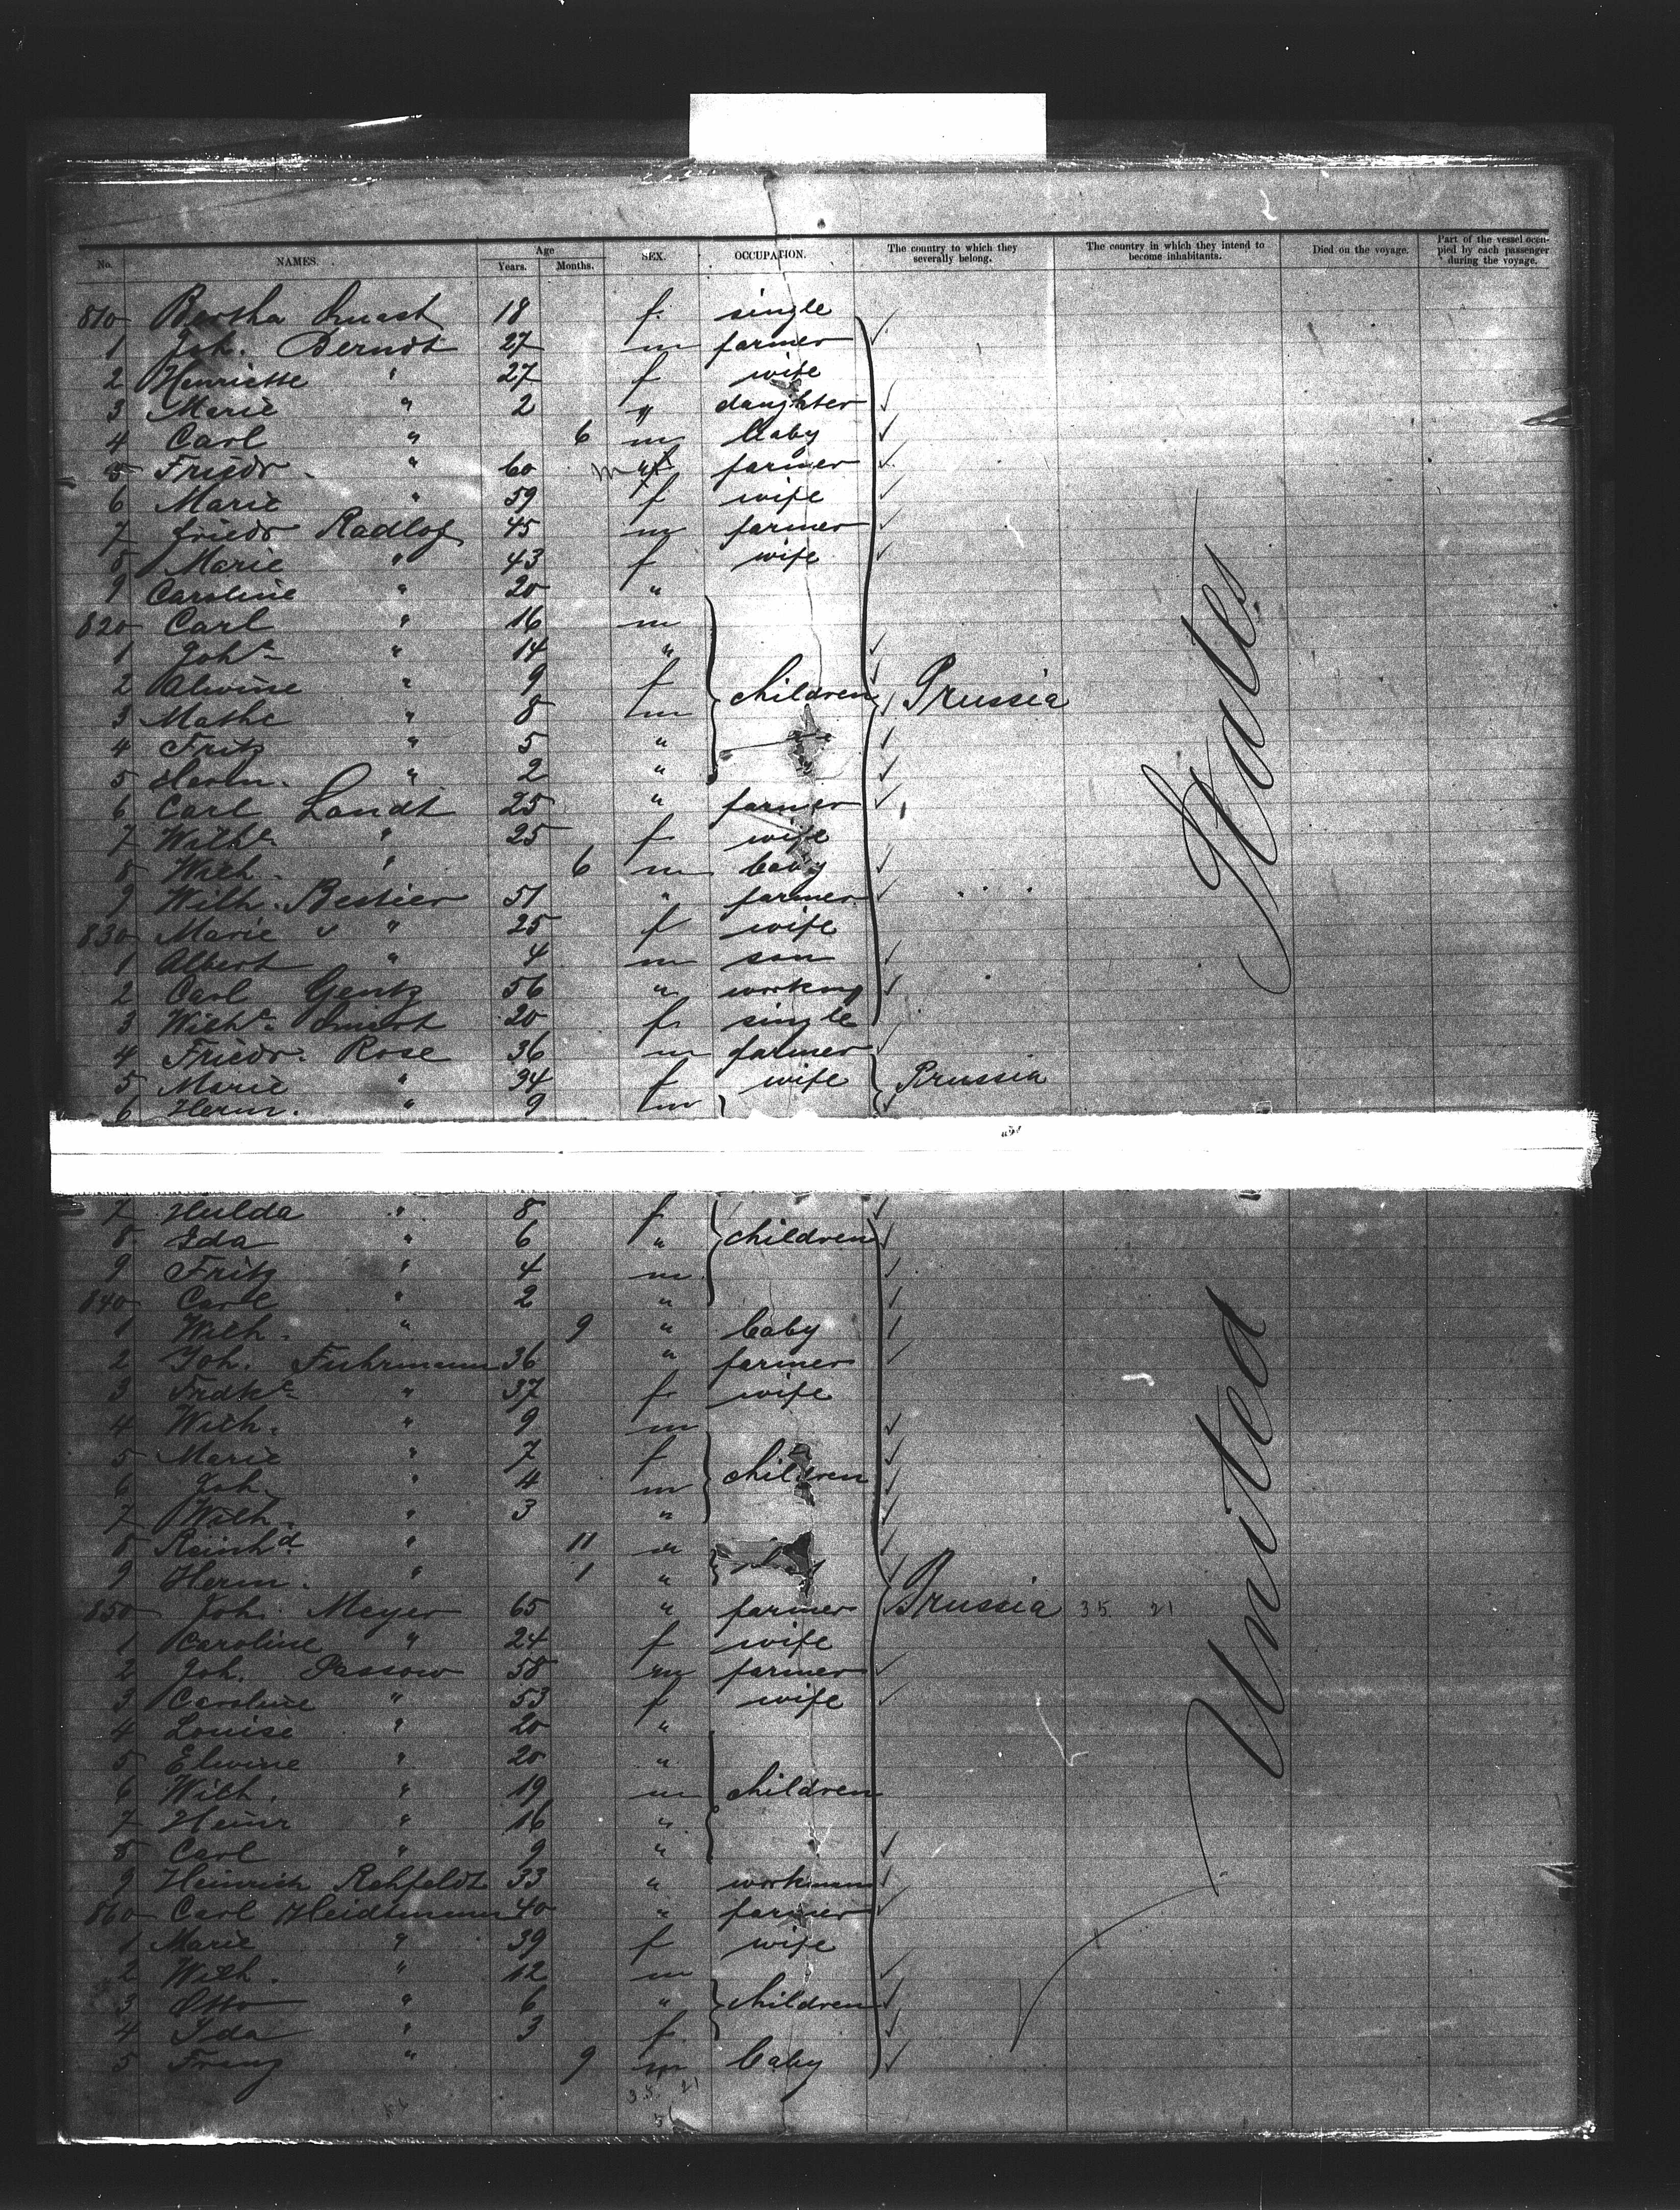 No. NAMES. Age Years. Months. SEX. OCCUPATION. The country to which they severally belong. The country in which they intend to become inhabitants. Died on the voyage. Part of the vessel occupied by each passenger during the voyage.
810 Bertha 18 f. single
1 Joh. Berndt 27 m farmer
2 Henriette " 27 f wife
3 Marie " 2 " daughter
4 Carl " 6 m baby
5 Friedr. " 60 m farmer
6 Marie " 59 f wife
7 Friedr Radlof 45 m farmer
8 Marie " 43 f wife
9 Caroline " 20 "
820 Carl " 16 m
1 Johe " 14 "
2 Alwine " 9 f children Prussia
3 Mathe " 8 m
4 Fritz " 5 "
5 Herm. " 2 "
6 Carl Landt 25 " farmer
7 Wilhe " 25 f wife
8 Wilh. " 6 m baby
9 Wilh. Bestier 51 " farmer
830 Marie " 25 f wife
1 Albert " 4 m son
2 Carl Gentz 56 " workmn
3 Wilhe 20 f single
4 Friedr. Rose 36 m farmer
5 Marie " 34 f wife Prussia
6 Herm. " 9 m
7 Hulda " 8 f
8 Ida " 6 " children
9 Fritz " 4 m
840 Carl " 2 "
1 Wilh. " 9 " baby
2 Joh. Fuhrmann 36 " farmer
3 Frdke " 37 f wife
4 Wilh. " 9 m
5 Marie " 7 f children
6 Joh. " 4 m
7 Wilh. " 3 "
8 Reinhd. " 11 m
9 Herm. " 1 "
850 Joh. Meyer 65 " farmer Prussia 35 21
1 Caroline " 24 f wife
2 Joh. Passow 58 m farmer
3 Caroline " 53 f wife
4 Louise " 20 "
5 Elwine " 20 "
6 Wilh. " 19 m children
7 Heinr " 16 "
8 Carl " 9 "
9 Heinrich Rehfeldt 33 " workmann
860 Carl Heidtmann 40 " farmer
1 Marie " 39 f wife
2 Wilh. " 12 m
3 Otto " 6 " children
4 Ida " 3 f
5 Franz " 9 m baby
35 21
56
United States